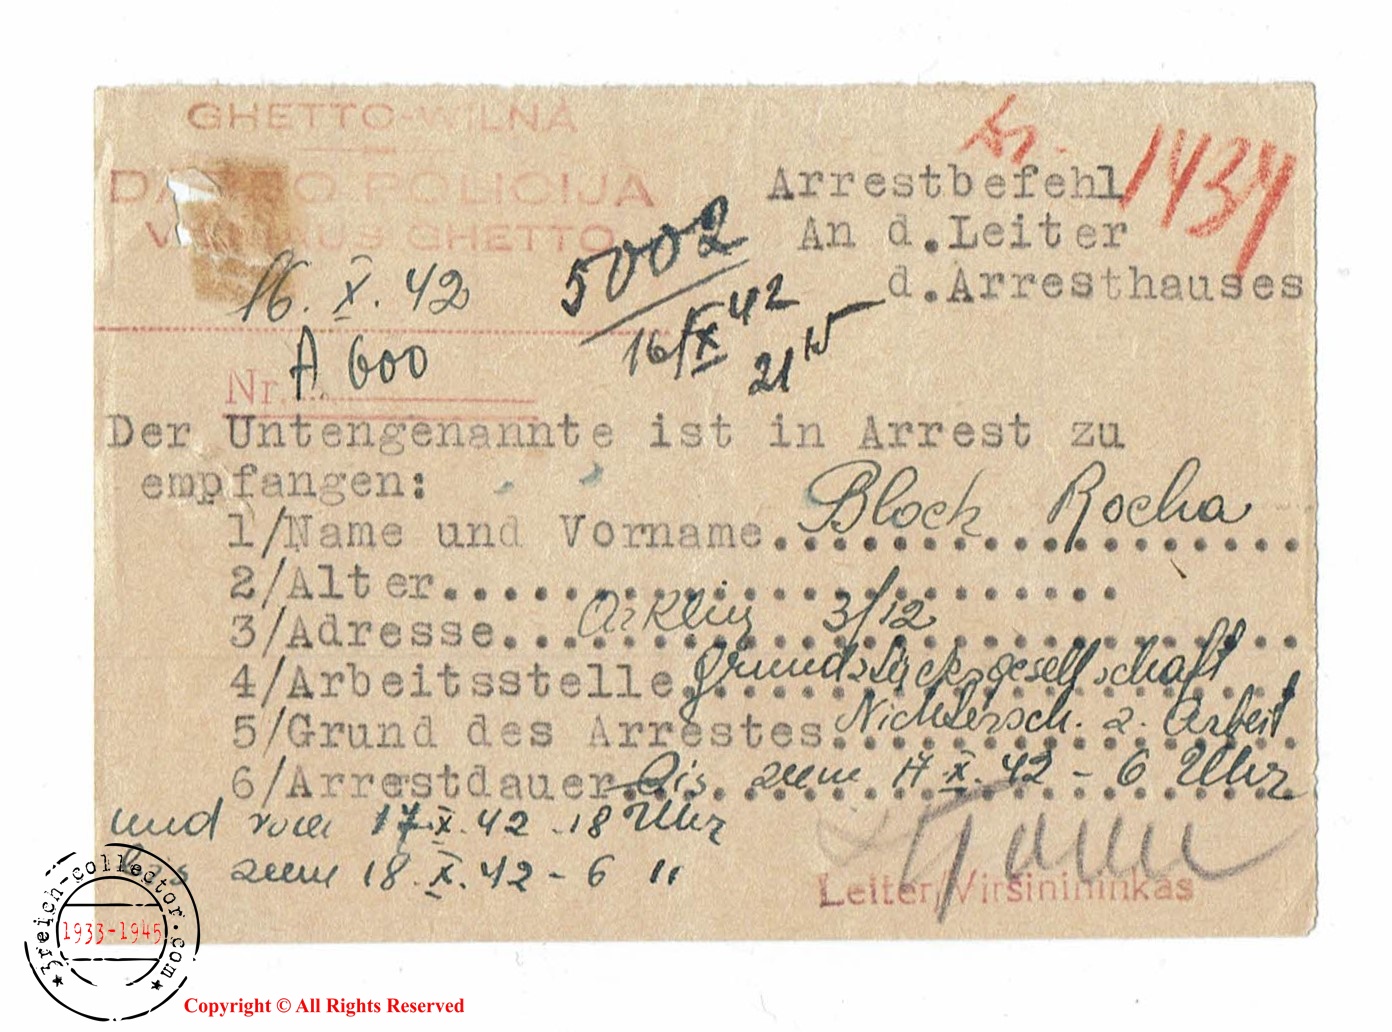 GHETTO-WILNA
DARBO POLICIJA
VILNIAUS GHETTO
16. X. 42
Nr. A 600
5002
16/X 42
21 15
1434
Arrestbefehl
An d.Leiter
d.Arresthauses
Der Untengenannte ist in Arrest zu
empfangen:
1/Name und Vorname Block Rocha
2/Alter
3/Adresse 3/12
4/Arbeitsstelle Grundstücksgesellschaft
5/Grund des Arrestes Nichtersch. z. Arbeit
6/Arrestdauer bis zum 17 X. 42 - 6 Uhr
und vom 17.X.42 - 18 Uhr
bis zum 18.X.42 - 6 "
Leiter/Viršinininkas
3reich-collector.com
1933-1945
Copyright © All Rights Reserved